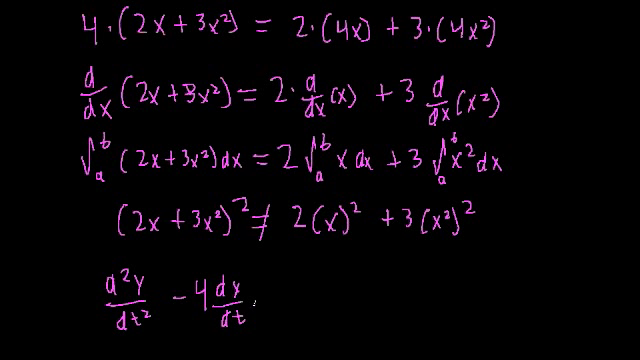 4·(2x + 3x²) = 2·(4x) + 3·(4x²)
d/dx (2x + 3x²) = 2·d/dx (x) + 3 d/dx (x²)
∫ₐᵇ (2x + 3x²) dx = 2 ∫ₐᵇ x dx + 3 ∫ₐᵇ x² dx
(2x + 3x²)² ≠ 2(x)² + 3(x²)²
d²y/dt² - 4 dy/dt